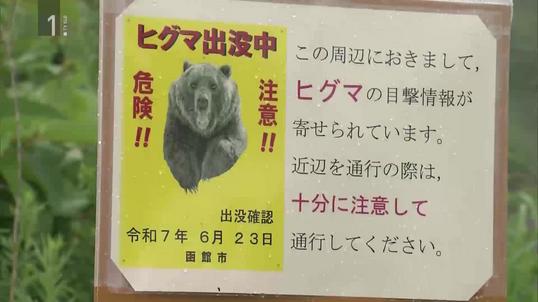 1
ヒグマ出没中
危険!!
注意!!
出没確認
令和7年 6月 23日
函館市
この周辺におきまして,
ヒグマの目撃情報が
寄せられています。
近辺を通行の際は,
十分に注意して
通行してください。